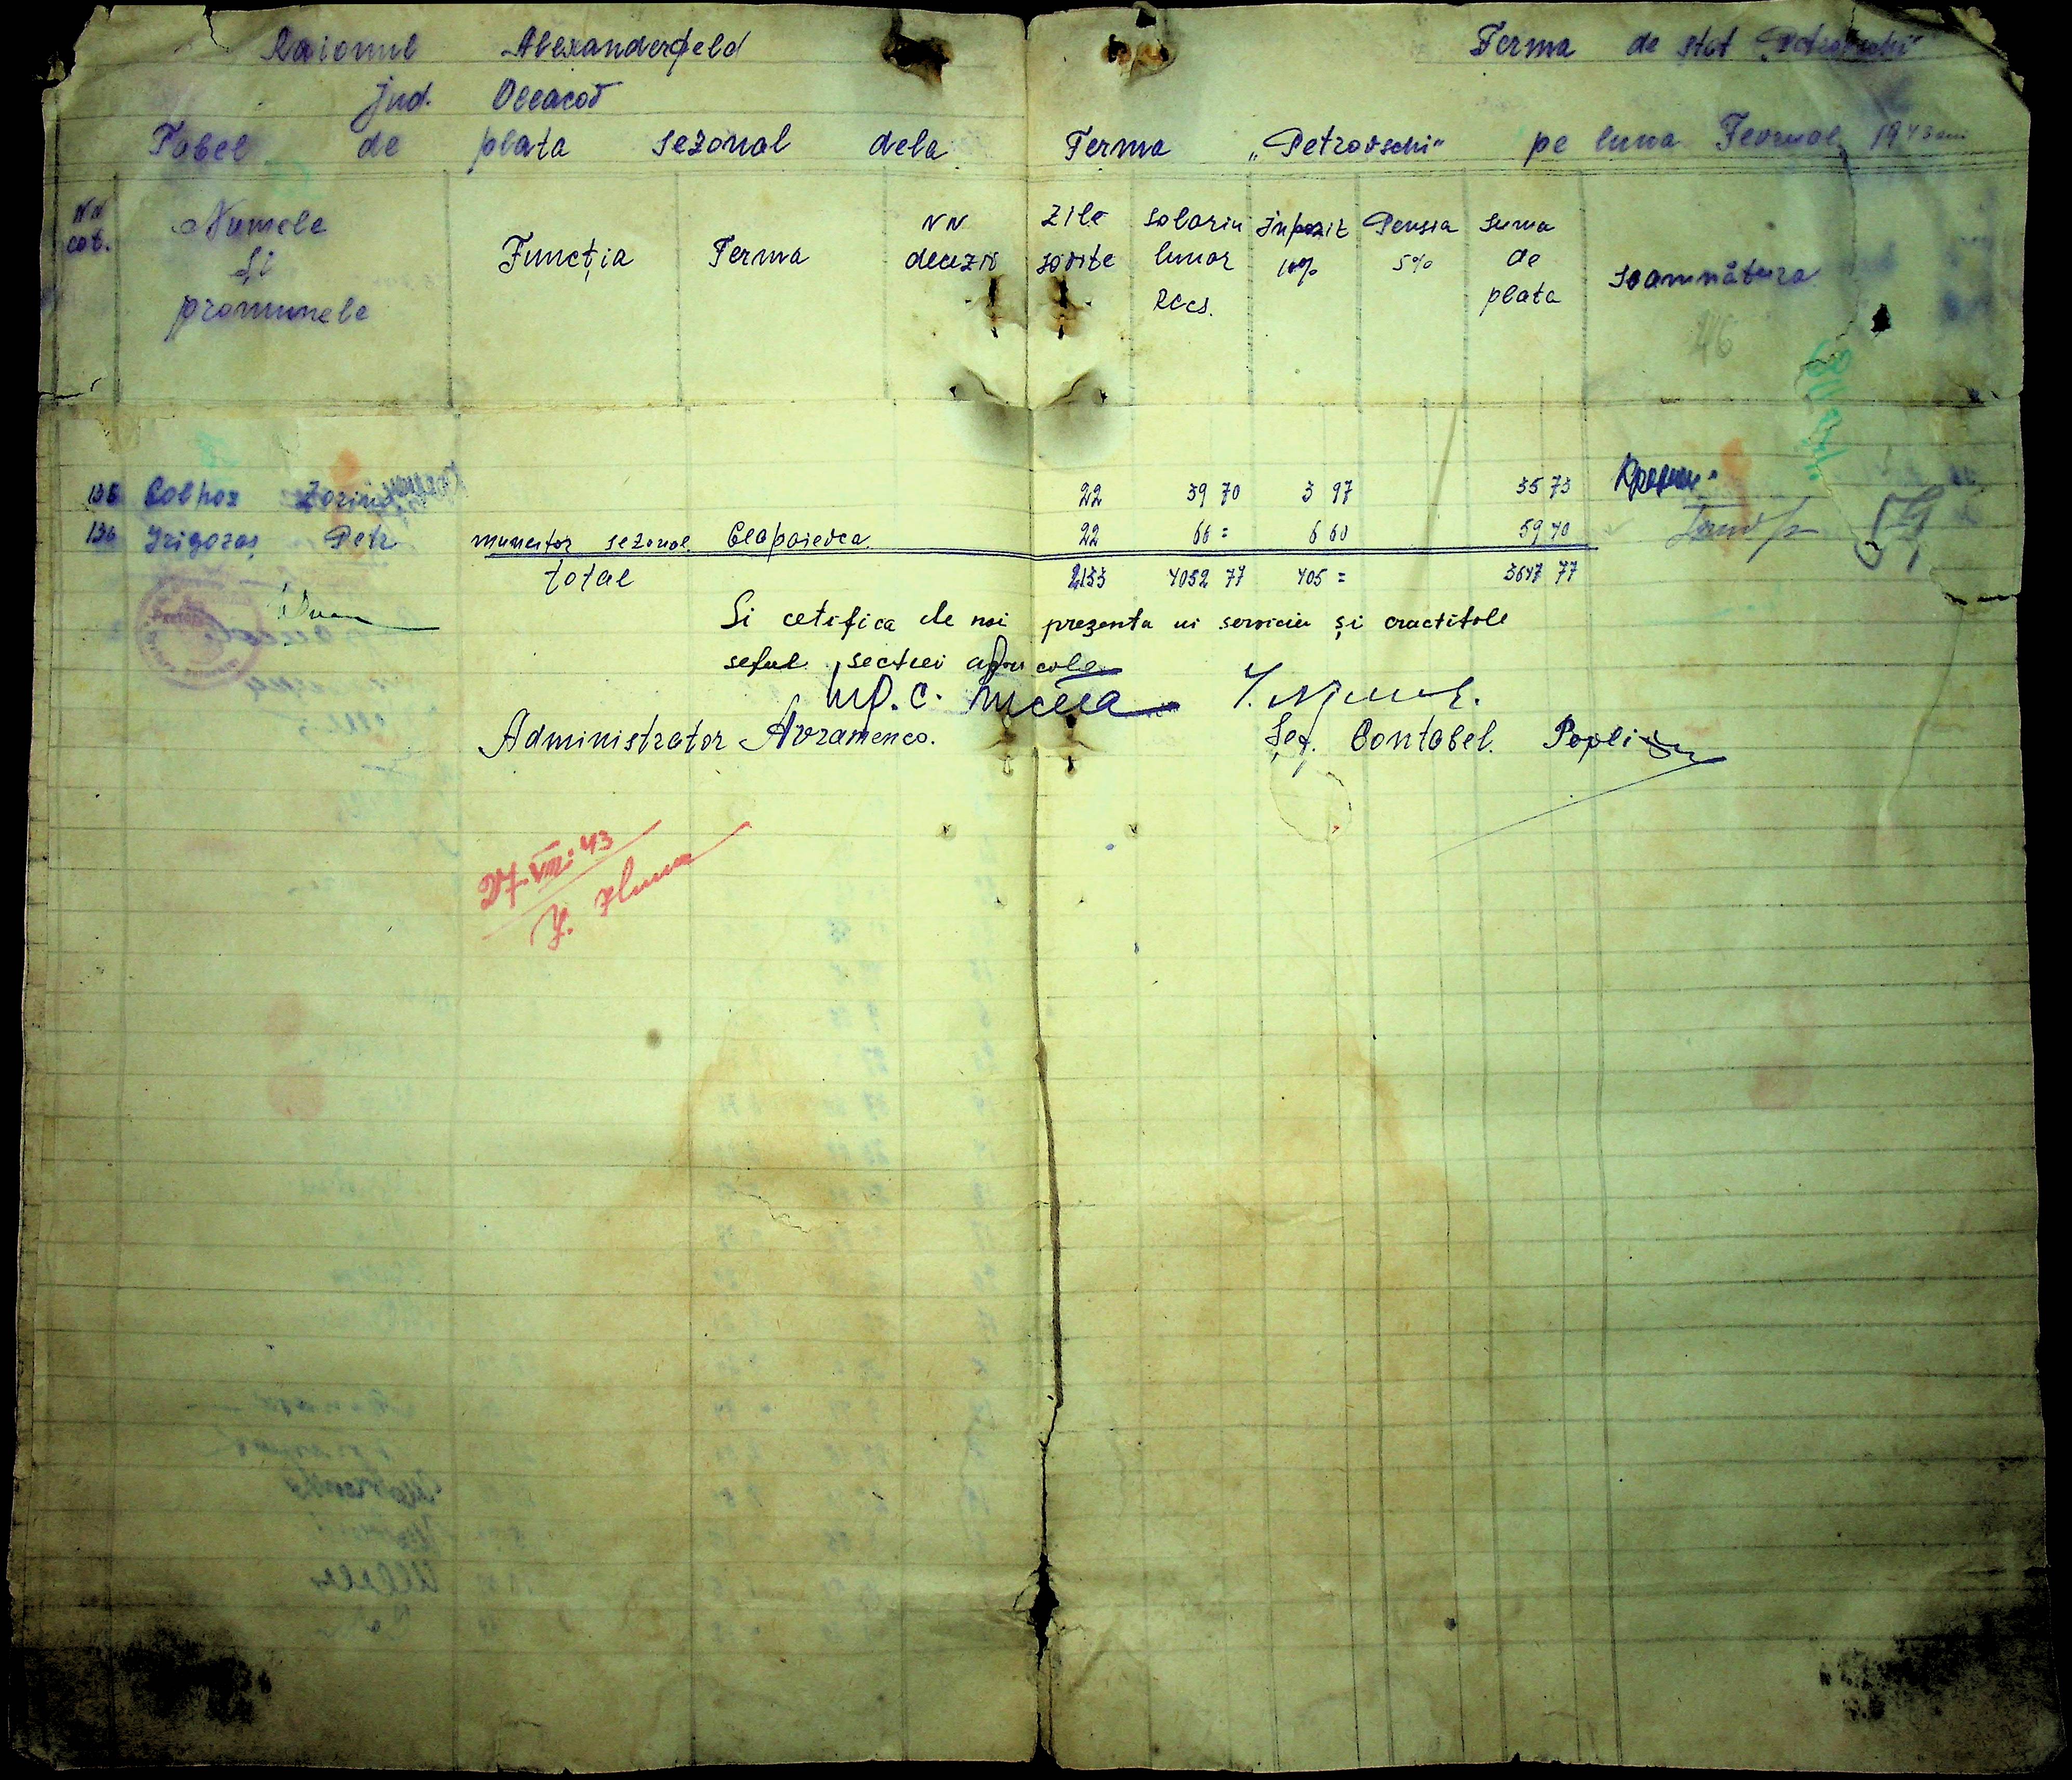 Raionul Alexanderfeld Ferma de stat „Petrovschi"
jud. Oceacov
Tabel de plata sezonal dela Ferma „Petrovschi" pe luna Fevrual 1943
NN cot. Numele și pronumele Funcția Ferma NN decizii Zile sovite Solariu lunar Rccs. Inpozit 10% Pensia 5% Suma de plata Soamnătura
46
135 Colhoz Zorini 22 39 70 3 97 35 73
136 Grigoraș Petr muncitor sezonal Ceapaievca 22 66 = 6 60 59 40
59
total 2133 4052 77 405 = 3647 77
Si cetifica de noi prezenta in serviciu și cractitole
seful sectiei agricole
Administrator Avramenco. Șef. Contabel.
27.VIII.43